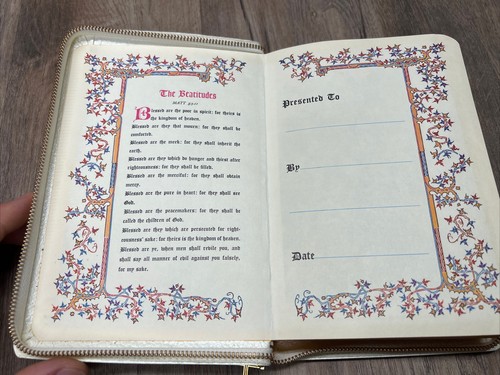 The Beatitudes
Blessed are the poor in spirit; for theirs is
the kingdom of heaven.
Blessed are they that mourn: for they shall be
comforted.
Blessed are the meek: for they shall inherit the
earth.
Blessed are they which do hunger and thirst after
righteousness: for they shall be filled.
Blessed are the merciful: for they shall obtain
mercy.
Blessed are the pure in heart: for they shall see
God.
Blessed are the peacemakers: for they shall be
called the children of God.
Blessed are they which are persecuted for right-
eousness' sake: for theirs is the kingdom of heaven.
Blessed are ye, when men shall revile you, and
shall say all manner of evil against you falsely,
for my sake.
Presented To
By
Date